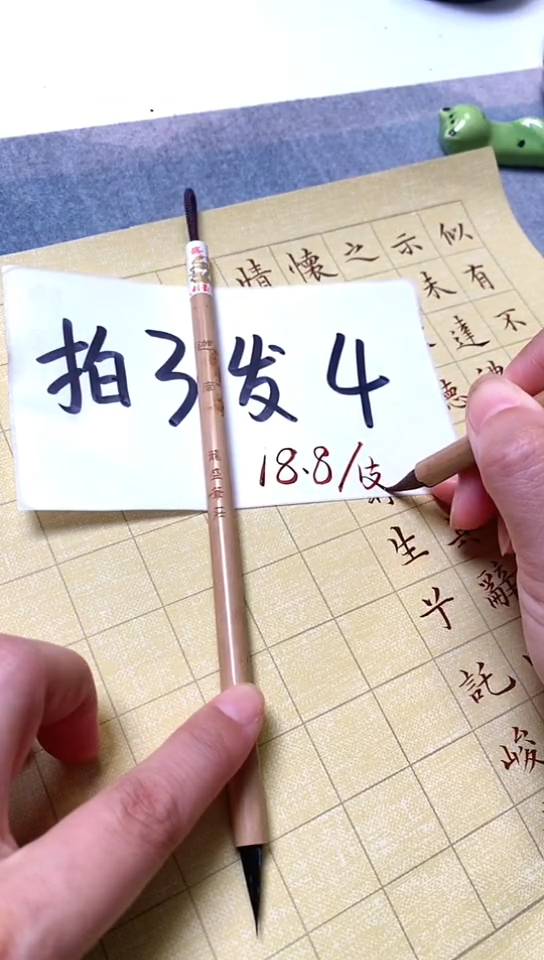 拍3发4
18.8/支
似示之懷情
有未
不達
德
生
兮辭
託
峻